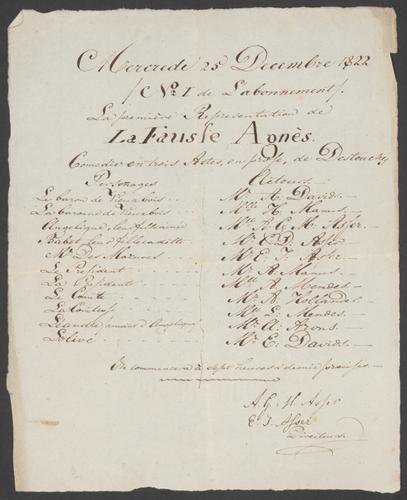 Mercrede 25 Decembre 1822
/ No: I de L'abonnement /.
La première Représentation de
La Fausse Agnès.
Comedie en trois Actes, en prose, de Destouches
Personages
Acteurs.
Le baron de Vieuxbois
Mr. A. David
La baronne de Vieuxbois
H. Manus
Angelique, leur fille ainée
A. G. M. Asser
Babet leur fille cadette
Mr. Des Mazures
Mr. E. I. Asser
Le President
Mr. A. Manus
La Presidente
A. Mendes
Le Comte
Mr. A. Hollander
La Comtesse
E. Mendes
Leandre, amant d'Angelique
Mr. A. Azons
Lolive
Mr. E. Davids
On commencera à sept heures & demie précises.
A. G. M. Asser
E. I. Asser
Directeurs